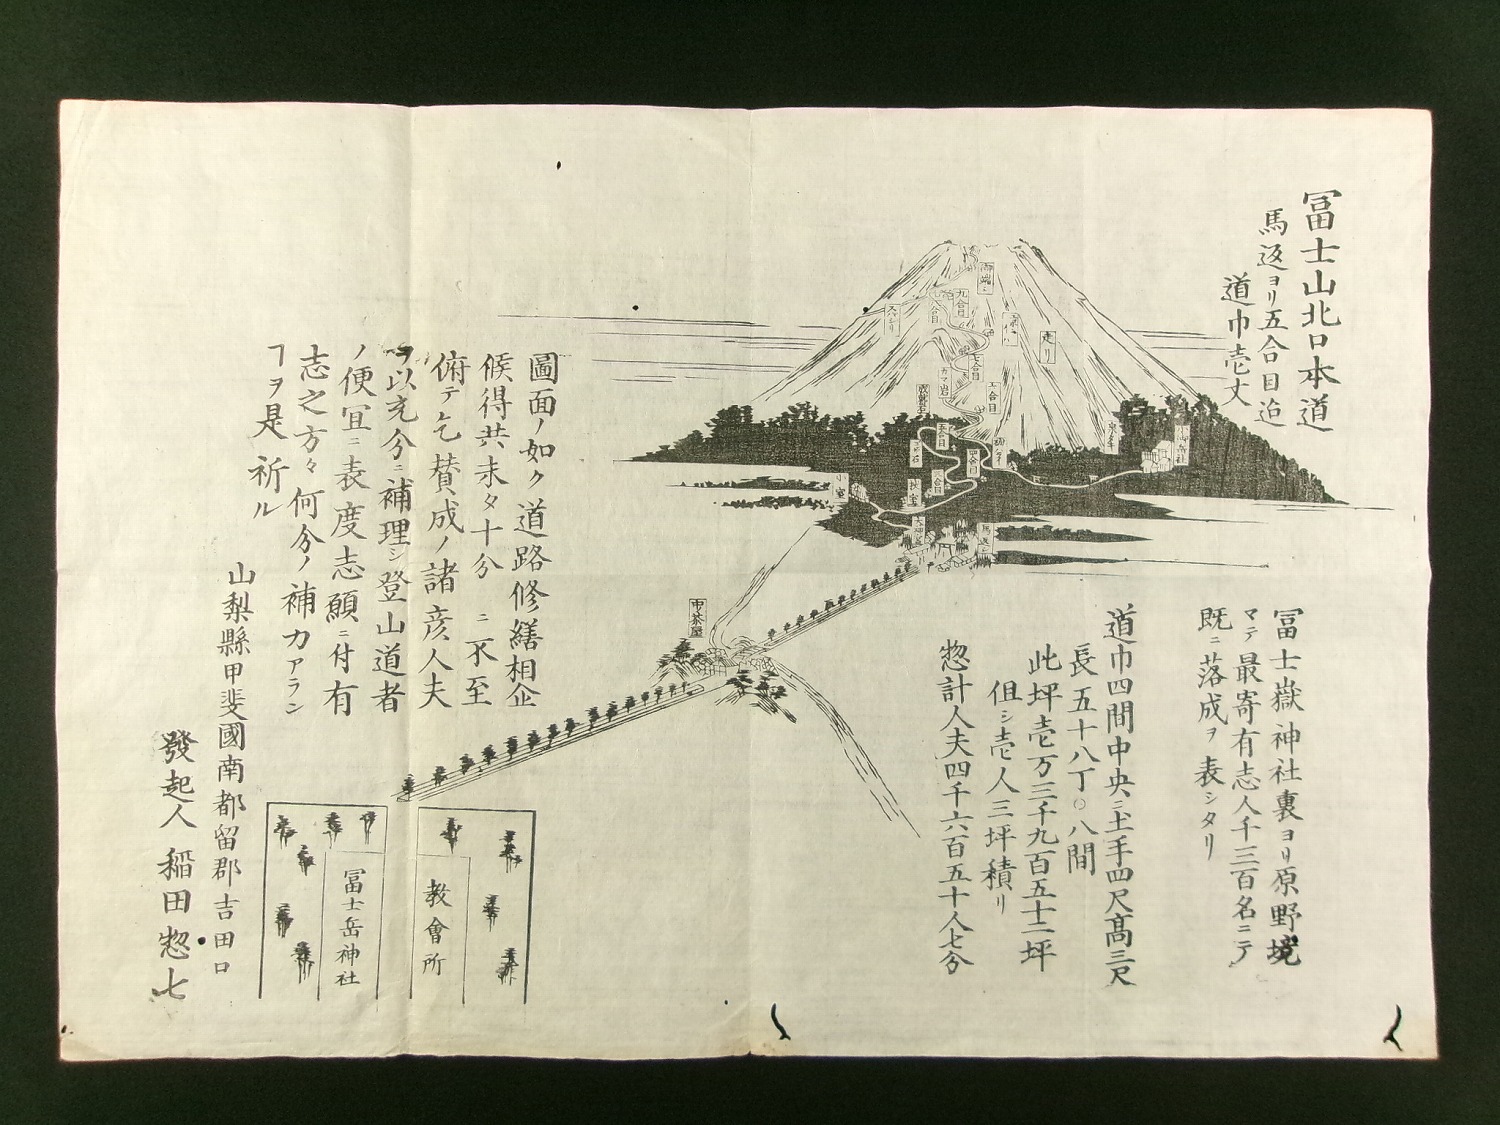 冨士山北口本道
馬返ヨリ五合目迠
道巾壱丈
冨士嶽神社裏ヨリ原野境
マテ最寄有志人千三百名ニテ
既ニ落成ヲ表シタリ
道巾四間中央ニ土手四尺髙三尺
長五十八丁〇八間
此坪壱万三千九百五十二坪
但シ壱人三坪積リ
惣計人夫四千六百五十人七分
走リ
九合目
八合目
七合目
六合目
カマ岩
五合目
四合目
二合目
小室
馬返
中茶屋
圖面ノ如ク道路修繕相企
候得共未タ十分ニ不至
俯テ乞賛成ノ諸彦人夫
ヲ以充分ニ補理シ登山道者
ノ便冝ニ表度志願ニ付有
志之方々何分ノ補力アラン
ヿヲ是祈ル
山梨縣甲斐國南都留郡吉田口
發起人 稲田惣七
教會所
冨士岳神社